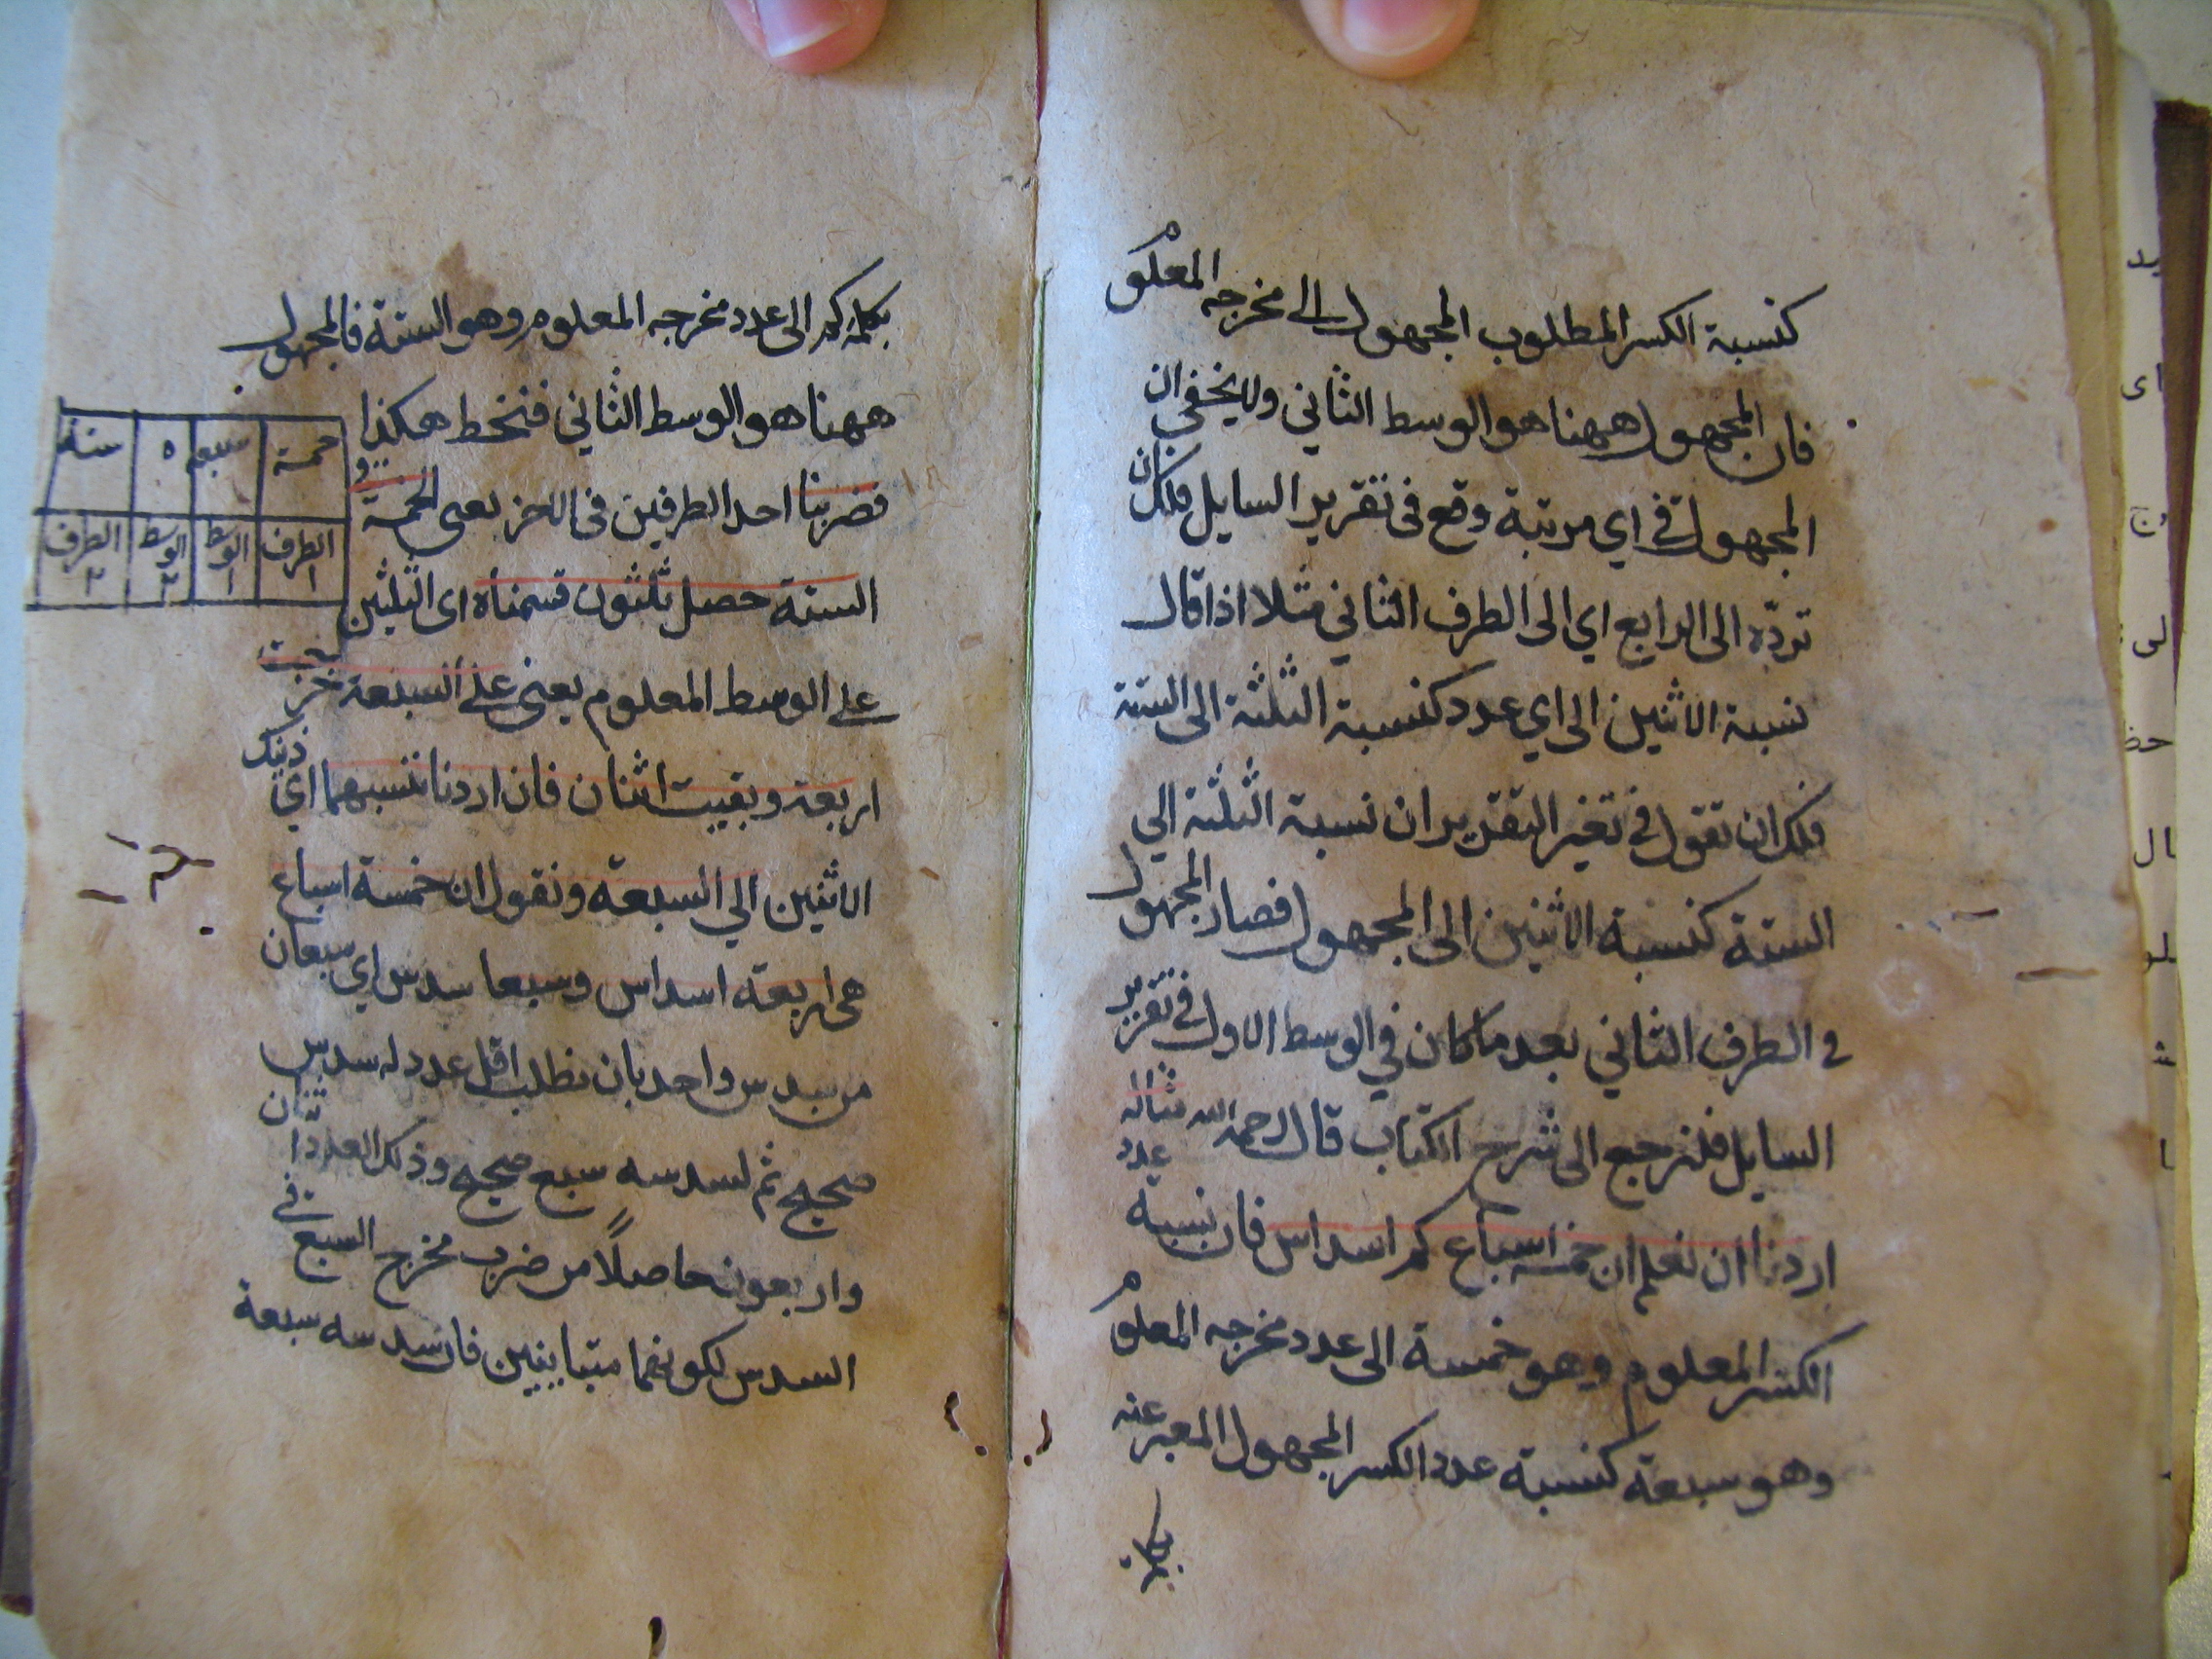 كنسبة الكسر المطلوب المجهول الى مخرجه المعلوم
فان المجهول ههنا هو الوسط الثاني ولا يخفى ان
المجهول في اي مرتبة وقع في تقرير السايل فلك ان
تردّه الى الرابع اي الى الطرف الثاني مثلا اذا قال
نسبة الاثنين الى اي عدد كنسبة الثلثة الى الستة
فلك ان تقول في تغير التقرير ان نسبة الثلثة الى
الستة كنسبة الاثنين الى المجهول فصار المجهول
في الطرف الثاني بعد ما كان في الوسط الاول في تقرير
السايل فلنرجع الى شرح الكتاب قال رحمه الله مثاله
اردنا ان نعلم ان خمسة اسباع كم اسداس فان نسبة عدد
الكسر المعلوم وهو خمسة الى عدد مخرجه المعلوم
وهو سبعة كنسبة عدد الكسر المجهول المعبر عنه
بكلمة
بكلمة كم الى عدد مخرجه المعلوم وهو الستة فالمجهول
ههنا هو الوسط الثاني فنخط هكذا
خمسة سبعة ٥ ستة
الطرف ١ الوسط ١ الوسط ٢ الطرف ٢
فضربنا احد الطرفين في الاخر يعني الخمسة في
الستة حصل ثلثون قسمناه اي الثلثين
على الوسط المعلوم يعني على السبعة خرجت
اربعة وبقيت اثنان فان اردنا ننسبهما اي ذينك
الاثنين الي السبعة ونقول ان خمسة اسباع
هي اربعة اسداس وسبعا سدس اي سبعان
من سدس واحد بان نطلب اقل عدد له سدس
صحيح ثم لسدسه سبع صحيح وذلك العدد اثنان
واربعون حاصلًا من ضرب مخرج السبع في
السدس لكونهما متباينين فان سدسه سبعة